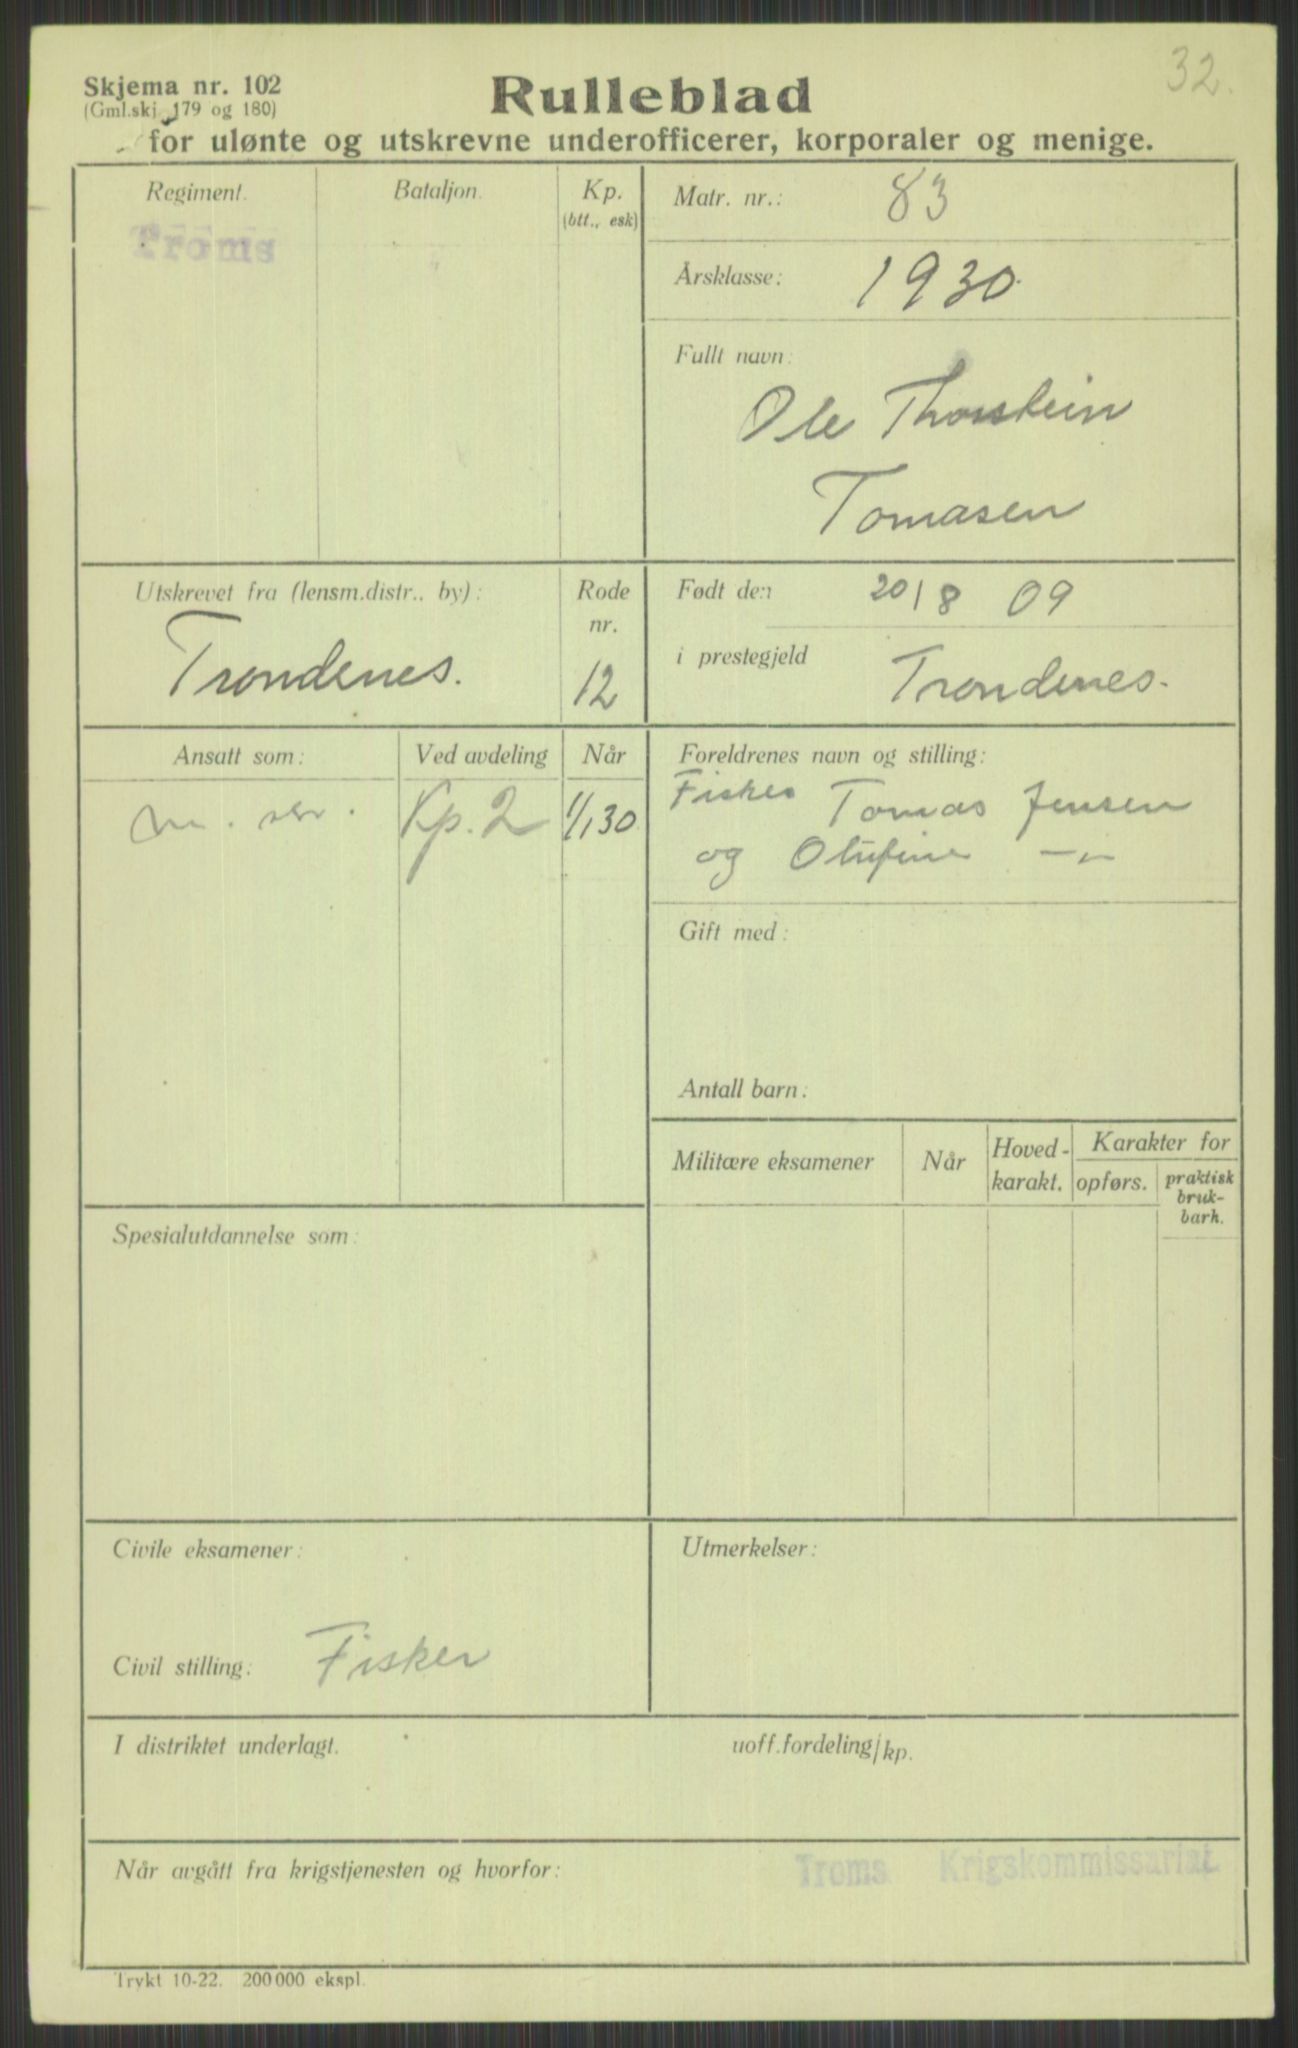 32.
Skjema nr. 102
(Gml.skj. 179 og 180)
Rulleblad
for ulønte og utskrevne underofficerer, korporaler og menige.
Regiment. Bataljon. Kp.
(btt., esk)
Troms
Matr. nr.: 83
Årsklasse: 1930
Fullt navn:
Ole Thorstein
Tomasen
Utskrevet fra (lensm.distr.. by): Rode
nr.
Trondenes. 12
Født den 20/8 09
i prestegjeld Trondenes.
Ansatt som: Ved avdeling Når
m. Kp. 2 1/1 30
Foreldrenes navn og stilling:
Fisker Tomas Jensen
og Olufine —"—
Gift med:
Antall barn:
Militære eksamener Når Hoved-
karakt. Karakter for
opførs. praktisk
bruk-
barh.
Spesialutdannelse som:
Civile eksamener:
Civil stilling: Fisker
Utmerkelser:
I distriktet underlagt. uoff.fordeling/kp.
Når avgått fra krigstjenesten og hvorfor: Troms Krigskommissariat
Trykt 10-22. 200 000 ekspl.